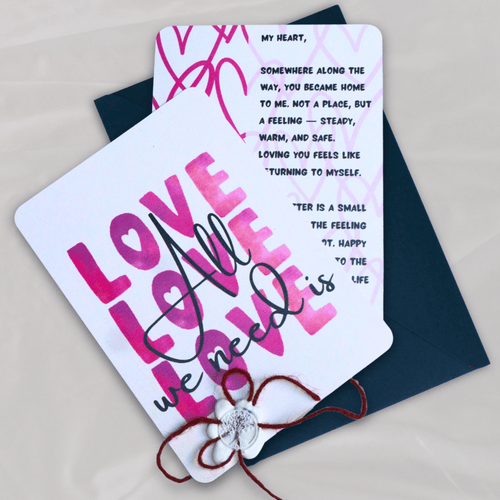 MY HEART,
SOMEWHERE ALONG THE
WAY, YOU BECAME HOME
TO ME. NOT A PLACE, BUT
A FEELING — STEADY,
WARM, AND SAFE.
LOVING YOU FEELS LIKE
TURNING TO MYSELF.
IS A SMALL
THE FEELING
HAPPY
TO THE
LIFE
LOVE
All
LOVE
we need is
LOVE